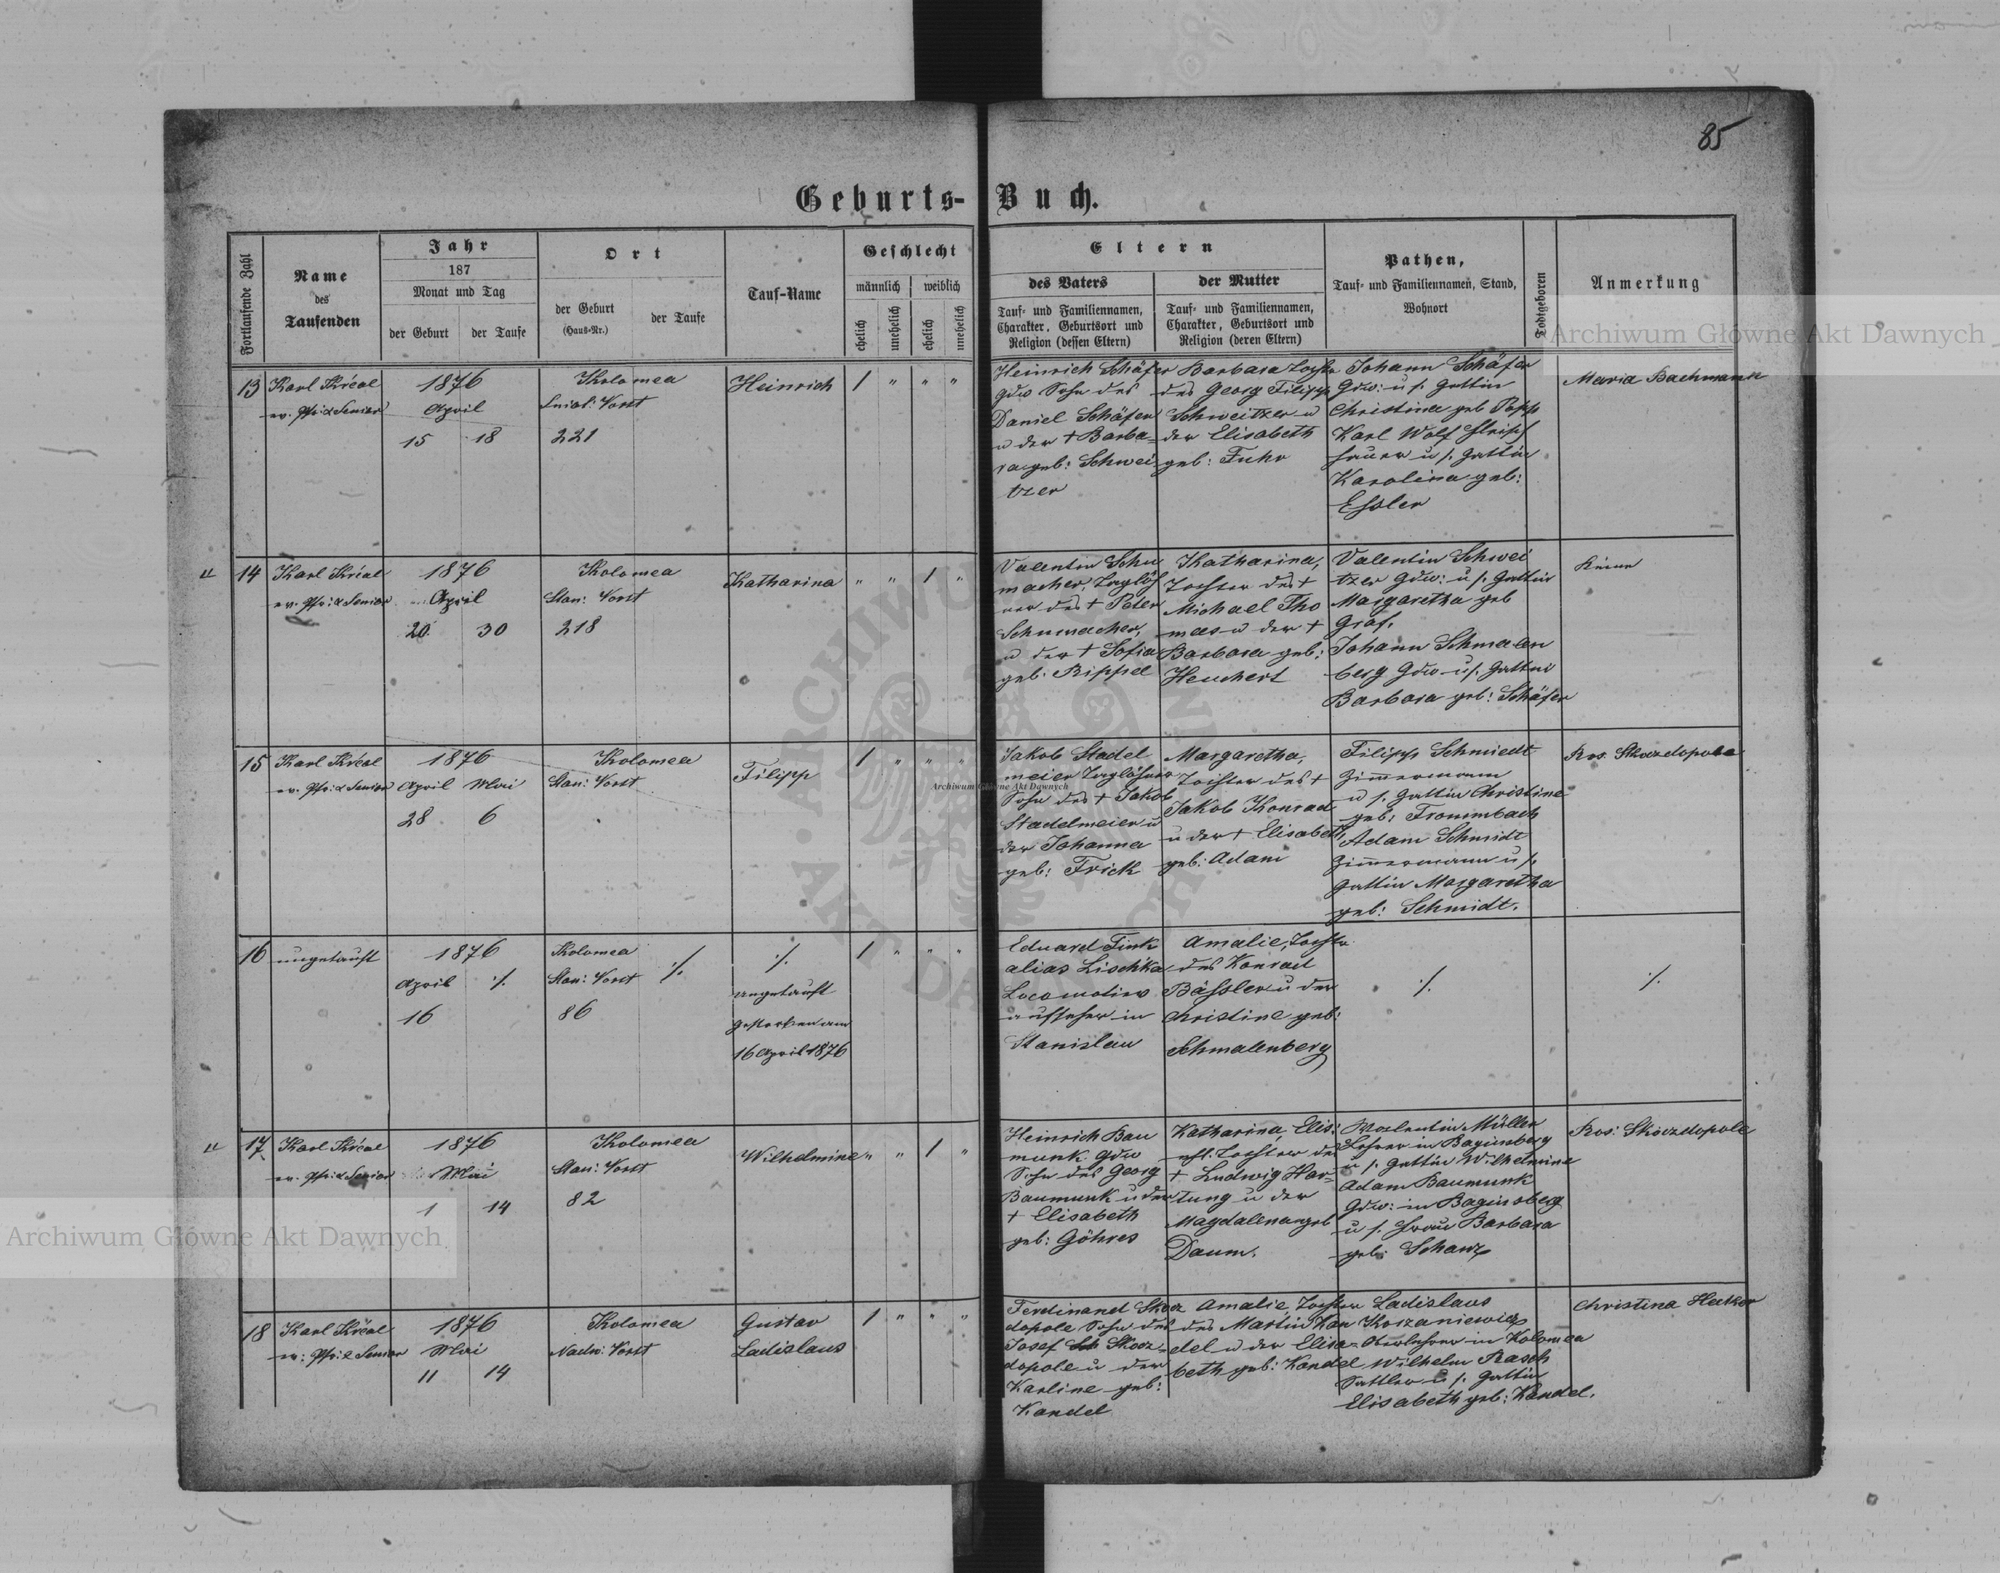 85
Geburts-Buch.
Fortlaufende Zahl
Name
des
Taufenden
Jahr
187
Monat und Tag
der Geburt
der Taufe
Ort
der Geburt
(Haus-Nr.)
der Taufe
Tauf-Name
Geschlecht
männlich
weiblich
ehelich
unehelich
ehelich
unehelich
Eltern
des Vaters
Tauf- und Familiennamen,
Charakter, Geburtsort und
Religion (dessen Eltern)
der Mutter
Tauf- und Familiennamen,
Charakter, Geburtsort und
Religion (deren Eltern)
Pathen,
Tauf- und Familiennamen, Stand,
Wohnort
Todtgeboren
Anmerkung
13
Karl Královec
1876
April
15 18
Kolomea
Vorst
221
Heinrich
1 " " "
Heinrich Schäfer
Gdw Sohn des
Daniel Schäfer
u der + Barba=
ra geb: Schwei
tzer
Barbara Tochter
des Georg Filipp
Schweitzer u
der Elisabeth
geb: Fuhr
Johann Schäfer
Gdw: u s. Gattin
Christina geb Popp
Karl Wolf
hauer u s. Gattin
Karolina geb:
Essler
Maria Bachmann
14
1876
April
20 30
Kolomea
Stan: Vorst
218
Katharina
" " 1 "
Valentin Schu
macher, Taglöh
ner des + Peter
Schumacher,
u der + Sofia
geb: Rippel
Katharina,
Tochter des +
Michael Tho
mas u der +
Barbara geb:
Heuchert
Valentin Schwei
tzer Gdw: u s. Gattin
Margaretha geb
Graf.
Johann Schmalen
berg Gdw u s. Gattin
Barbara geb: Schäfer
Keine
15
1876
April Mai
28 6
Kolomea
Stan: Vorst
Filipp
1 " " "
Jakob Stadel
meier Taglöhner
Sohn des + Jakob
Stadelmeier u
der Johanna
geb: Frick
Margaretha,
Tochter des +
Jakob Konrad
u der + Elisabeth
geb: Adam
Filipp Schmiedt
Zimmermann
u s. Gattin Christine
geb: Trommbach
Adam Schmidt
Zimmermann u s.
Gattin Margaretha
geb: Schmidt.
Ros. Skoczdopole
16
ungetauft
1876
April ./.
16
Kolomea
Stan: Vorst ./.
86
./.
ungetauft
gestorben am
16 April 1876
1 " " "
Eduard Fink
alias Lischka
Locomotiv
aufseher in
Stanislau
Amalie, Tochter
des Konrad
Bässler u der
Christine geb:
Schmalenberg
./.
./.
17
1876
Mai
1 14
Kolomea
Stan: Vorst
82
Wilhelmine
" " 1 "
Heinrich Bau
munk Gdw
Sohn des Georg
Baumunk u der
+ Elisabeth
geb: Göhres
Katharina, Elis:
Tochter des
+ Ludwig Har=
tung u der
Magdalena geb
Daum.
Valentin Müller
Lehrer in Baginsberg
u s. Gattin Wilhelmine
Adam Baumunk
Gdw: in Baginsberg
u s. Frau Barbara
geb: Schanz
Ros: Skoczdopole
18
1876
Mai
11 14
Kolomea
Nadw: Vorst
Gustav
Ladislaus
1 " " "
Ferdinand Skocz
dopole Sohn des
Josef Skocz
dopole u der
Karline geb:
Kandel
Amalie, Tochter
des Martin Kan
del u der Elisa=
beth geb: Kandel
Ladislaus
Oberlehrer in Kolomea
Wilhelm Rasch
Sattler u s. Gattin
Elisabeth geb: Kandel.
Archiwum Główne Akt Dawnych
Archiwum Główne Akt Dawnych
Archiwum Główne Akt Dawnych